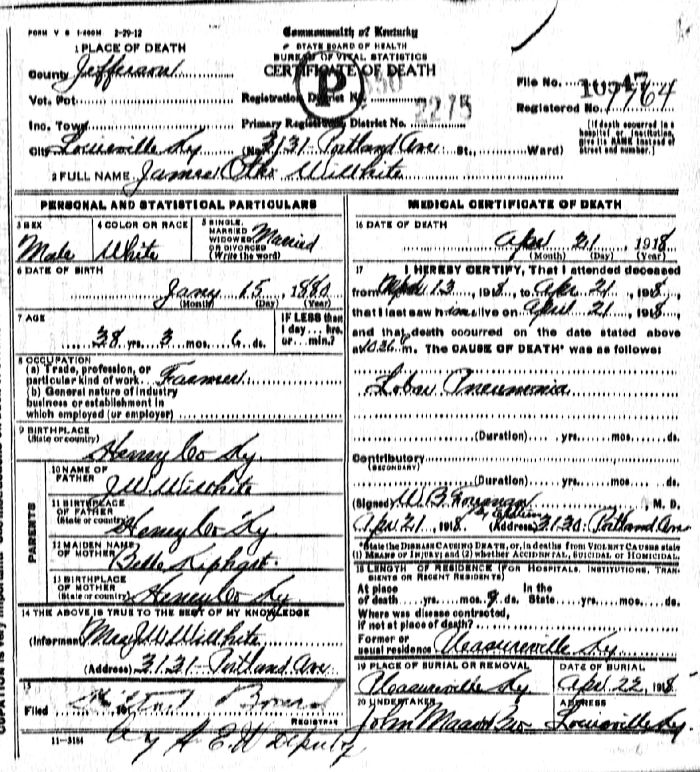 FORM V S 1-400M 2-29-12
Commonwealth of Kentucky
STATE BOARD OF HEALTH
BUREAU OF VITAL STATISTICS
CERTIFICATE OF DEATH
1 PLACE OF DEATH
County Jefferson
Vot. Pct.
Inc. Town
City Louisville Ky (No. 3131 Portland Ave St., Ward)
Registration District No.
P
Primary Registration District No. 2275
File No. 10547
Registered No. 1764
[If death occurred in a
hospital or institution,
give its NAME instead of
street and number.]
2 FULL NAME James Wilhite
PERSONAL AND STATISTICAL PARTICULARS
3 SEX
Male
4 COLOR OR RACE
White
5 SINGLE,
MARRIED
WIDOWED
OR DIVORCED
(Write the word)
Married
6 DATE OF BIRTH
Jany 15, 1880
(Month) (Day) (Year)
7 AGE
38 yrs. 3 mos. 6 ds.
IF LESS than
1 day... hrs.
or... min.?
8 OCCUPATION
(a) Trade, profession, or
particular kind of work Farmer
(b) General nature of industry
business or establishment in
which employed (or employer)
9 BIRTHPLACE
(State or country) Henry Co Ky
PARENTS
10 NAME OF
FATHER J.W. Wilhite
11 BIRTHPLACE
OF FATHER
(State or country) Henry Co Ky
12 MAIDEN NAME
OF MOTHER Belle
13 BIRTHPLACE
OF MOTHER
(State or country) Henry Co Ky
14 THE ABOVE IS TRUE TO THE BEST OF MY KNOWLEDGE
(Informant) Mrs J W Wilhite
(Address) 3131 Portland Ave
15
Filed
REGISTRAR
by A E W Deputy
11-3184
MEDICAL CERTIFICATE OF DEATH
16 DATE OF DEATH
Apr 21, 1918
(Month) (Day) (Year)
17 I HEREBY CERTIFY, That I attended deceased
from April 13, 1918, to Apr 21, 1918,
that I last saw him alive on April 21, 1918,
and that death occurred on the date stated above
at 10.26 m. The CAUSE OF DEATH* was as follows:
Lobar Pneumonia
(Duration) yrs. mos. ds.
Contributory
(SECONDARY)
(Duration) yrs. mos. ds.
(Signed) W B, M. D.
Apr 21, 1918 (Address) 3130 Portland Ave
*State the DISEASE CAUSING DEATH, or, in deaths from VIOLENT CAUSES state
(1) MEANS OF INJURY; and (2) whether ACCIDENTAL, SUICIDAL or HOMICIDAL.
18 LENGTH OF RESIDENCE (FOR HOSPITALS, INSTITUTIONS, TRAN-
SIENTS OR RECENT RESIDENTS)
At place
of death yrs. mos. 9 ds.
In the
State yrs. mos. ds.
Where was disease contracted,
if not at place of death?
Former or
usual residence Pleasureville Ky
19 PLACE OF BURIAL OR REMOVAL
Pleasureville Ky
DATE OF BURIAL
Apr 22, 1918
20 UNDERTAKER
John Maas Co
ADDRESS
Louisville Ky